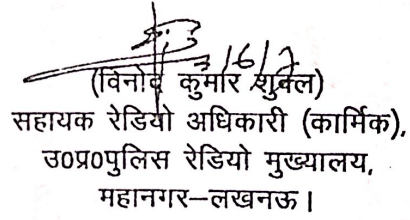 3/6/7
(विनोद कुमार शुक्ल)
सहायक रेडियो अधिकारी (कार्मिक),
उ0प्र0पुलिस रेडियो मुख्यालय,
महानगर–लखनऊ।